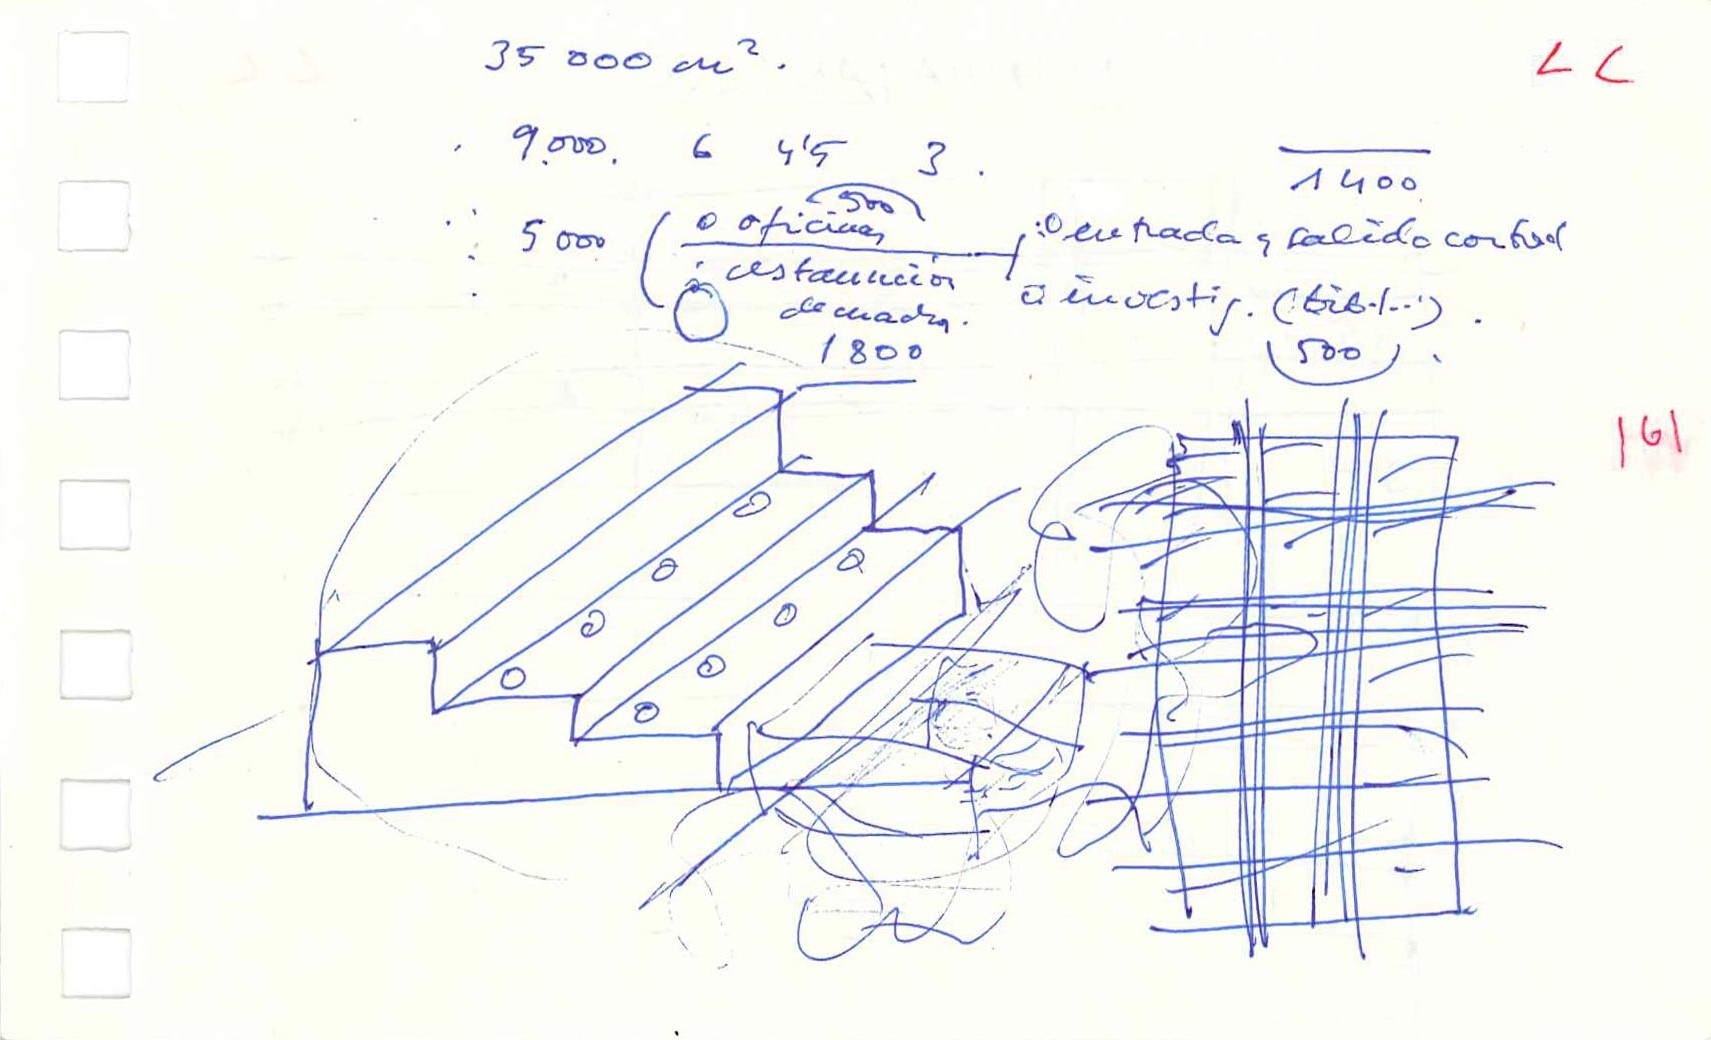 35 000 m².
L L
9.000. 6 4'5 3.
1400
500
5000 o oficinas
o entrada y salida control
o restauración
o investig. (bibl...).
de cuadros.
500
1800
161